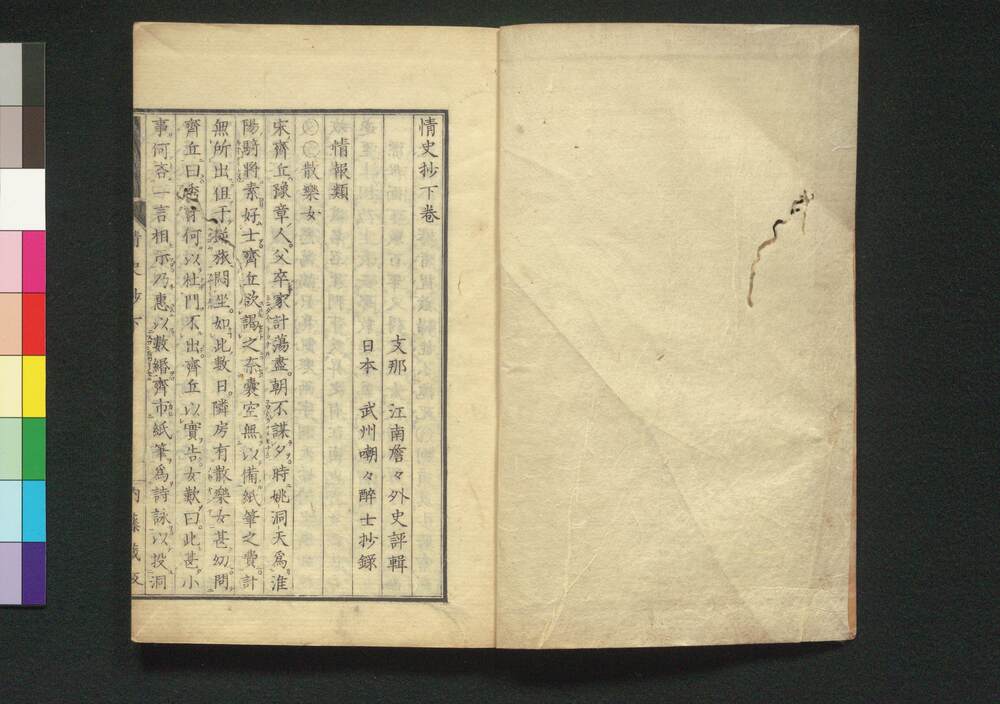 情史抄下卷
支那　江南詹々外史評輯
日本　武州嘲々醉士抄錄
情報類
散樂女
宋齊丘豫章人父卒家計蕩盡朝不謀夕時姚洞天爲淮
陽騎將素好士齊丘欲謁之奈囊空無以備紙筆之費計
無所出但于逆旅悶坐如此數日隣房有散樂女甚幼問
齊丘曰秀才何以杜門不出齊丘以實告女歎曰此甚小
事何吝一言相示乃惠以數緡齊市紙筆爲詩詠以投洞
情史抄下